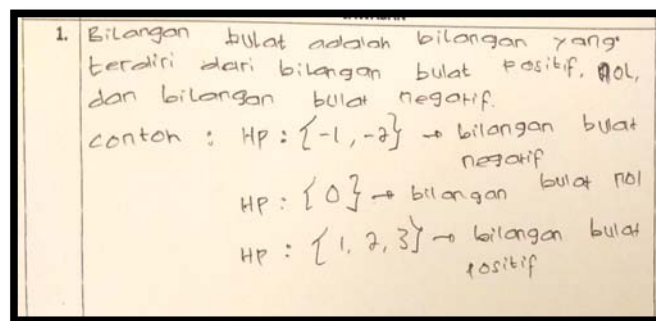 1. Bilangan bulat adalah bilangan yang
terdiri dari bilangan bulat positif, nol,
dan bilangan bulat negatif.
contoh : HP : {-1, -2} → bilangan bulat
negatif
HP : {0} → bilangan bulat nol
HP : {1, 2, 3} → bilangan bulat
positif